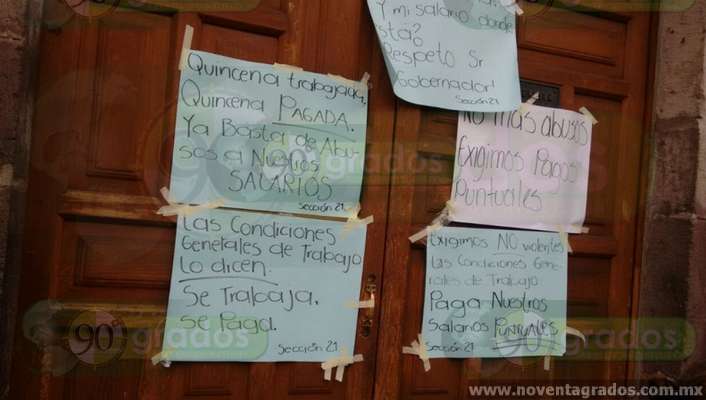 Quincena trabajada,
Quincena PAGADA.
Ya Basta de Abu-
sos a Nuestros
SALARIOS
Sección 21.
Las Condiciones
Generales de Trabajo
lo dicen.
Se Trabaja,
se Paga.
Sección 21
Y mi salario donde
stá?
Respeto Sr
Gobernador!
Sección 21
No más abusos
Exigimos Pagos
Puntuales
Exigimos NO violenten
las Condiciones Gene-
rales de Trabajo
Paga Nuestros
Salarios PUNTUALES
Sección 21
90 grados
www.noventagrados.com.mx